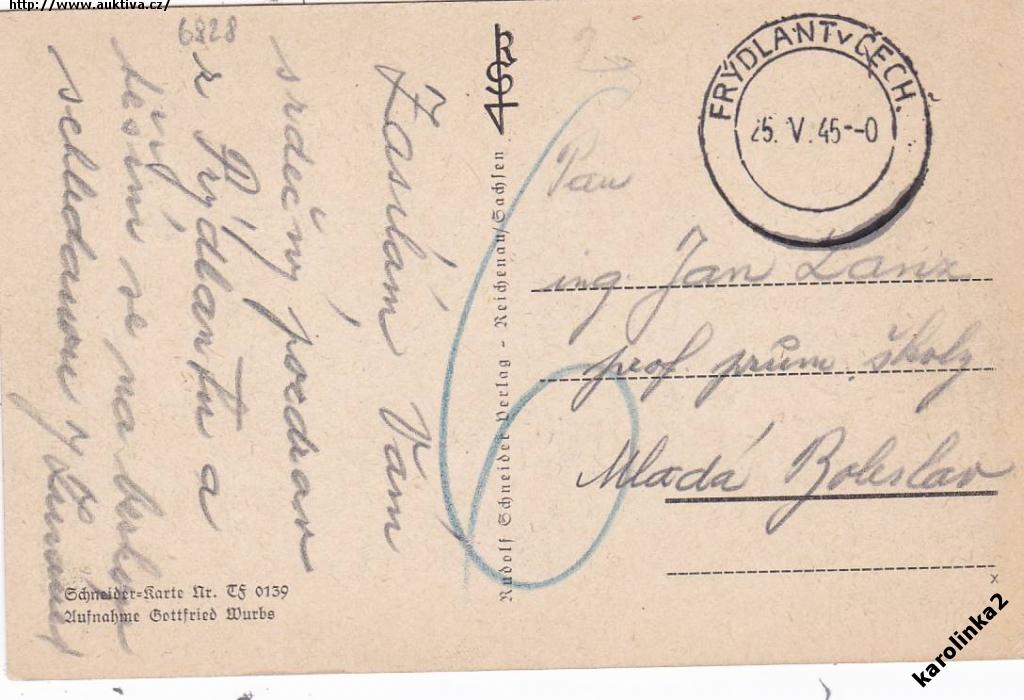 http://www.auktiva.cz/
6828
Zasílám Vám
srdečný pozdrav
z Frýdlantu a
těším se na brzkou
schledanou
FRÝDLANT v ČECH.
25. V. 45--0
Pan
ing. Jan
prof. prům. školy
Mladá Boleslav
6
Rudolf Schneider Verlag - Reichenau/Sachsen
Schneider-Karte Nr. TF 0139
Aufnahme Gottfried Wurbs
x
karolinka2